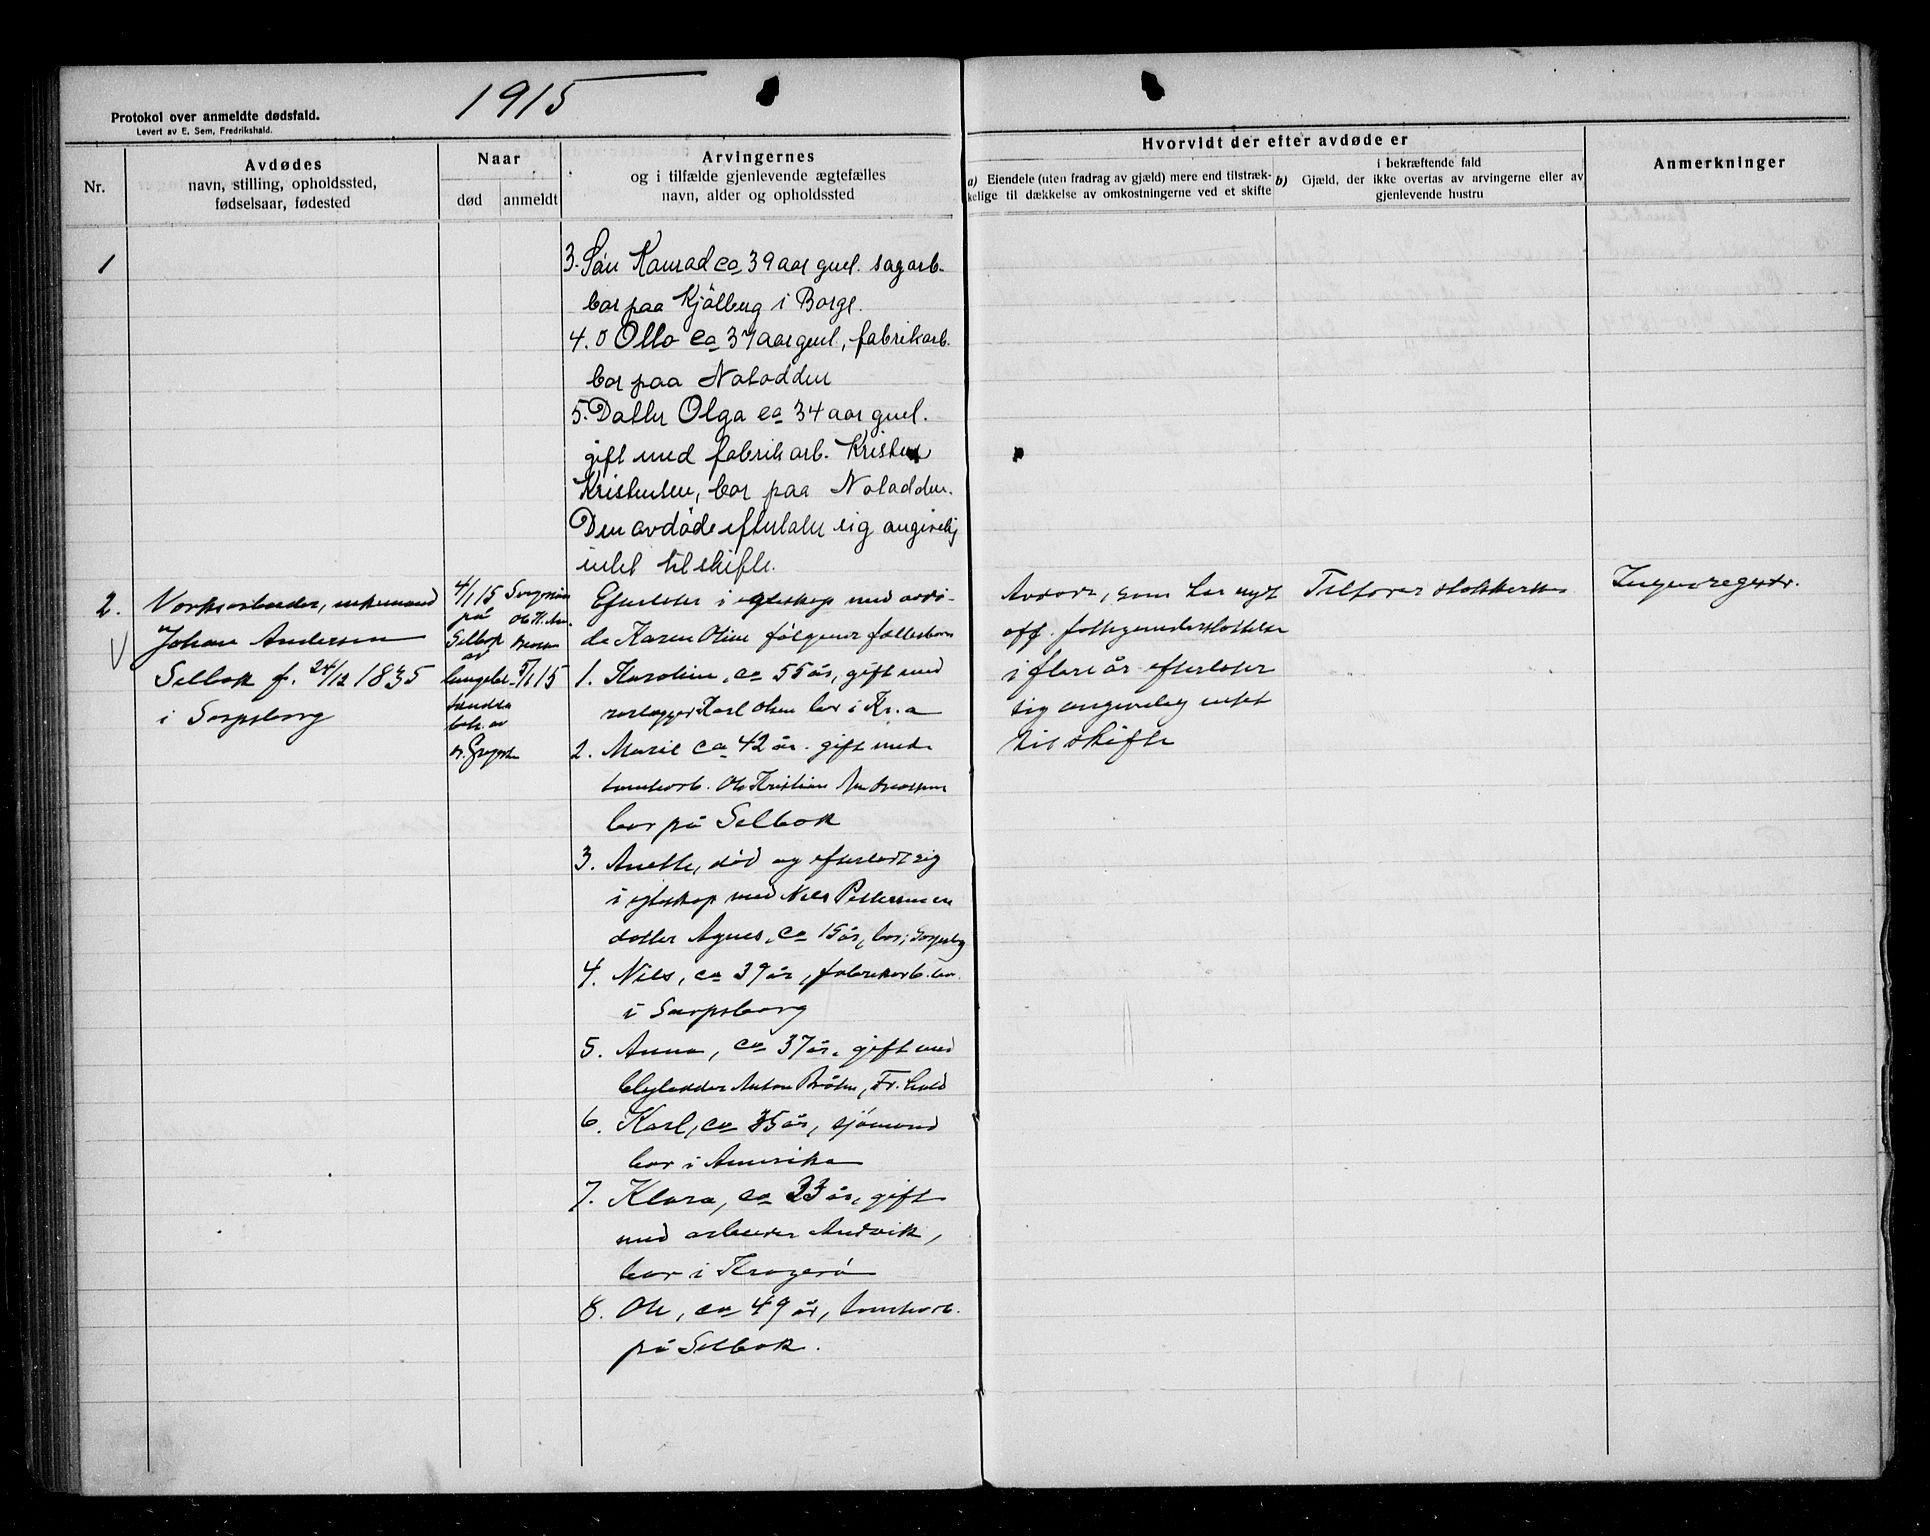 1915
Protokol over anmeldte dødsfald.
Levert av E. Sem, Fredrikshald.
Nr.
Avdødes
navn, stilling, opholdssted,
fødselsaar, fødested
Naar
død
anmeldt
Arvingernes
og i tilfælde gjenlevende ægtefælles
navn, alder og opholdssted
Hvorvidt der efter avdøde er
a) Eiendele (uten fradrag av gjæld) mere end tilstræk-
kelige til dækkelse av omkostningerne ved et skifte
i bekræftende fald
b) Gjæld, der ikke overtas av arvingerne eller av
gjenlevende hustru
Anmerkninger
1
3. Søn Konrad ca 39 aar gml. sagarb.
bor paa Kjølberg i Borge.
4. " Otto ca 37 aar gml, fabrikarb.
bor paa Notodden
5. Datter Olga ca 34 aar gml.
gift med fabrikarb. Kristen
Kristensen, bor paa Notodden.
Den avdøde efterlater sig angivelig
intet til skifte.
2.
Johan Andersen
Selbak f. 24/12 1835
i Sarpsborg
4/1 15
på
Selbak
av
lungebe-
tændelse
beh. av
dr.
Ole Kr. An-
dreassen
5/1 15
Efterlater i egteskap med avdø-
de Karen Oline følgende fællesbarn
1. Karoline, ca 55 år, gift med
Karl Olsen bor i Kr.a
2. Marie ca 42 år. gift med
tomtearb. Ole Kristian Andreassen
bor på Selbak
3. Anette, død og efterlatt sig
i egteskap med Nils Pettersen en
datter Agnes, ca 15 år, bor i Sarpsbg
4. Nils, ca 39 år, fabrikarb. bor
i Sarpsborg
5. Anna, ca 37 år, gift med
Anton Bröhn, Fr.hald
6. Karl, ca 35 år, sjömand
bor i Amerika
7. Klara, ca 33 år, gift
med arbeider Andvik,
bor i Kragerö
8. Ole, ca 49 år, tomtearb.
på Selbak.
Avdøde, som har nydt
off. fattigunderstöttelse
i flere år efterlater
sig angivelig intet
til skifte
Ingen registr.